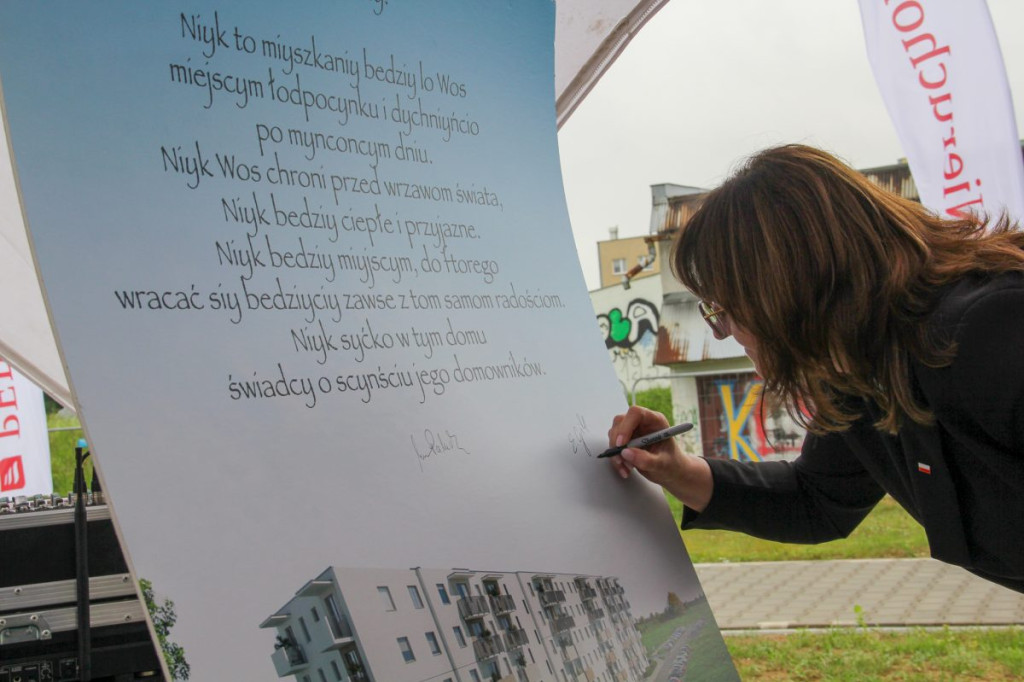 Niyk to miyszkaniy bedziy lo Wos
miejscym łodpocynku i dychniyńcio
po mynconcym dniu.
Niyk Wos chroni przed wrzawom świata,
Niyk bedziy ciepłe i przyjazne.
Niyk bedziy miyjscym, do ftorego
wracać siy bedziyciy zawse z tom samom radościom.
Niyk syćko w tym domu
świadcy o scynściu jego domowników.
Nieruchom